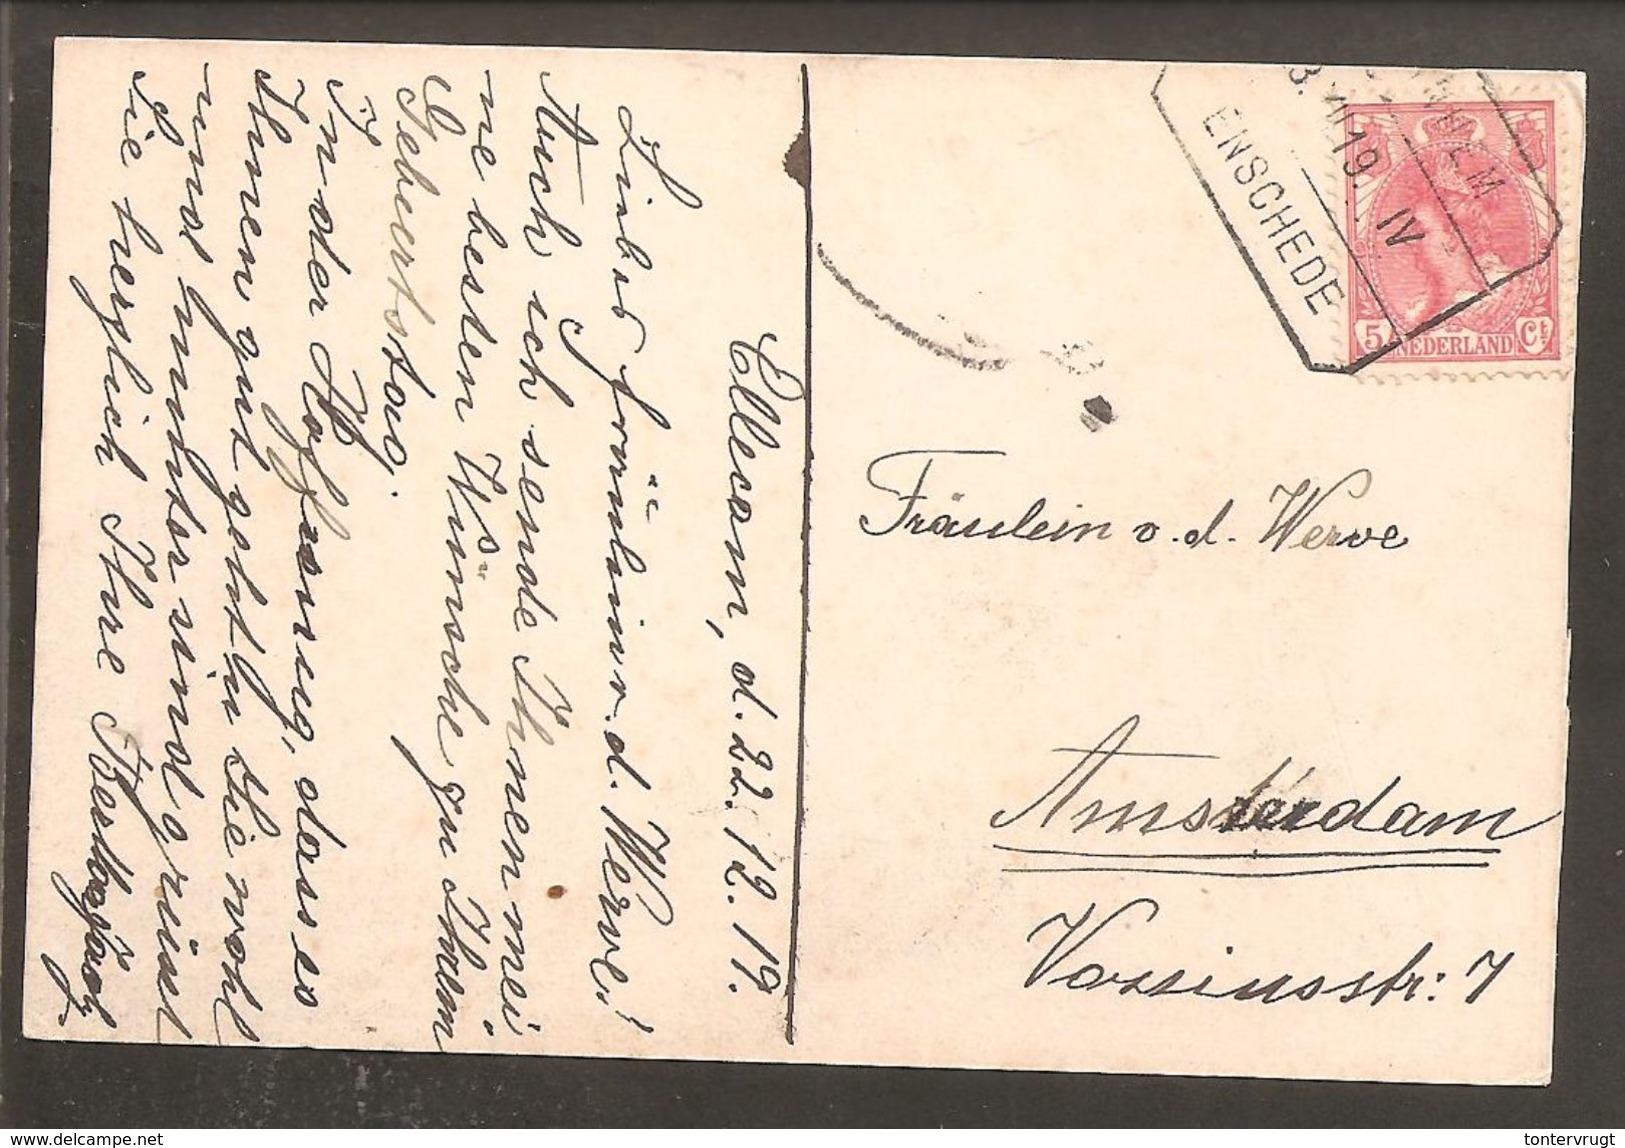 Ellecom, d. 22. 12. 19.
Liebes Fräulein v. d. Werve!
Auch ich sende Ihnen mei-
ne besten Wünsche zu Ihrem
Geburtstag.
In der Hoffnung, dass es
Ihnen gut geht u. Sie wohl
und munter sind grüsst
Sie herzlich Ihre
ENSCHEDE
19. IV
5 NEDERLAND Ct.
Fräulein v. d. Werve
Amsterdam
Vossiusstr: 7
http://www.delcampe.net
tontervrugt